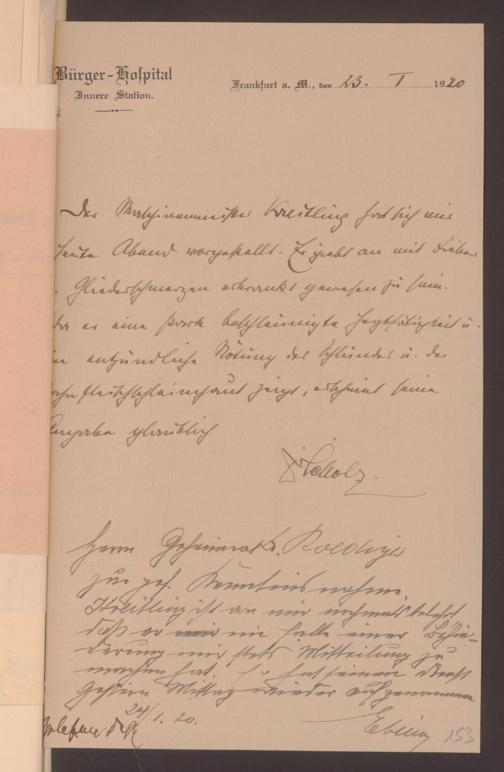 Bürger-Hospital
Innere Station.
Frankfurt a. M., den 23. I 1920
Der Maschinenmeister Kreitling hat sich mir
heute Abend vorgestellt. Er giebt an mit Fieber
Gliederschmerzen erkrankt gewesen zu sein.
da er eine stark beschleunigte Herztätigkeit u.
entzündliche Rötung des Schlundes u. der
zeigt, erscheint seine
Angabe glaublich
Scholz.
Herrn Geheimrat Roediger
zur gef. Kenntnisnahme.
Kreitling ist von mir nochmals belehrt
daß er im Falle einer Behin-
derung mir stets Mitteilung zu
machen hat. Er hat seinen Dienst
gestern Mittag wieder aufgenommen
24/1. 20.
Ebeling
153